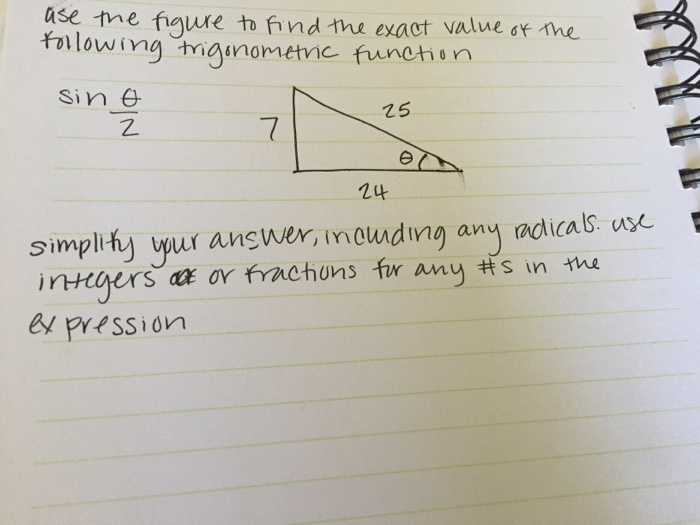 use the figure to find the exact value of the
following trigonometric function
sin θ/2
7
25
θ
24
simplify your answer, including any radicals. use
integers or fractions for any #s in the
expression